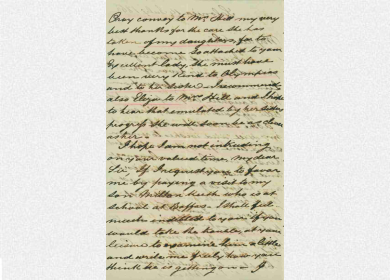 Pray convey to Mrs Hill my very
best thanks for the care she has
taken of my daughters, for to
have become so attached to your
Excellent lady, she must have
been very kind to Olympias
and to her sister. I recommend
also Eliza to Mrs Hill and I hope
to hear that emulated by her sister's
progress she will soon be as clever
as her.
I hope I am not intruding
on your valued time, my dear
Sir, if I request you to favor
me by paying a visit to my
son who is at
school at I shall feel
much indebted to you if you
would take the trouble, at your
leisure to examine him a little
and write me freely how you
think he is getting on